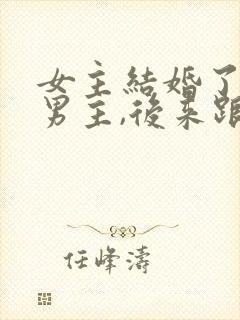 女主結婚了
男主,後來跟
任峰濤